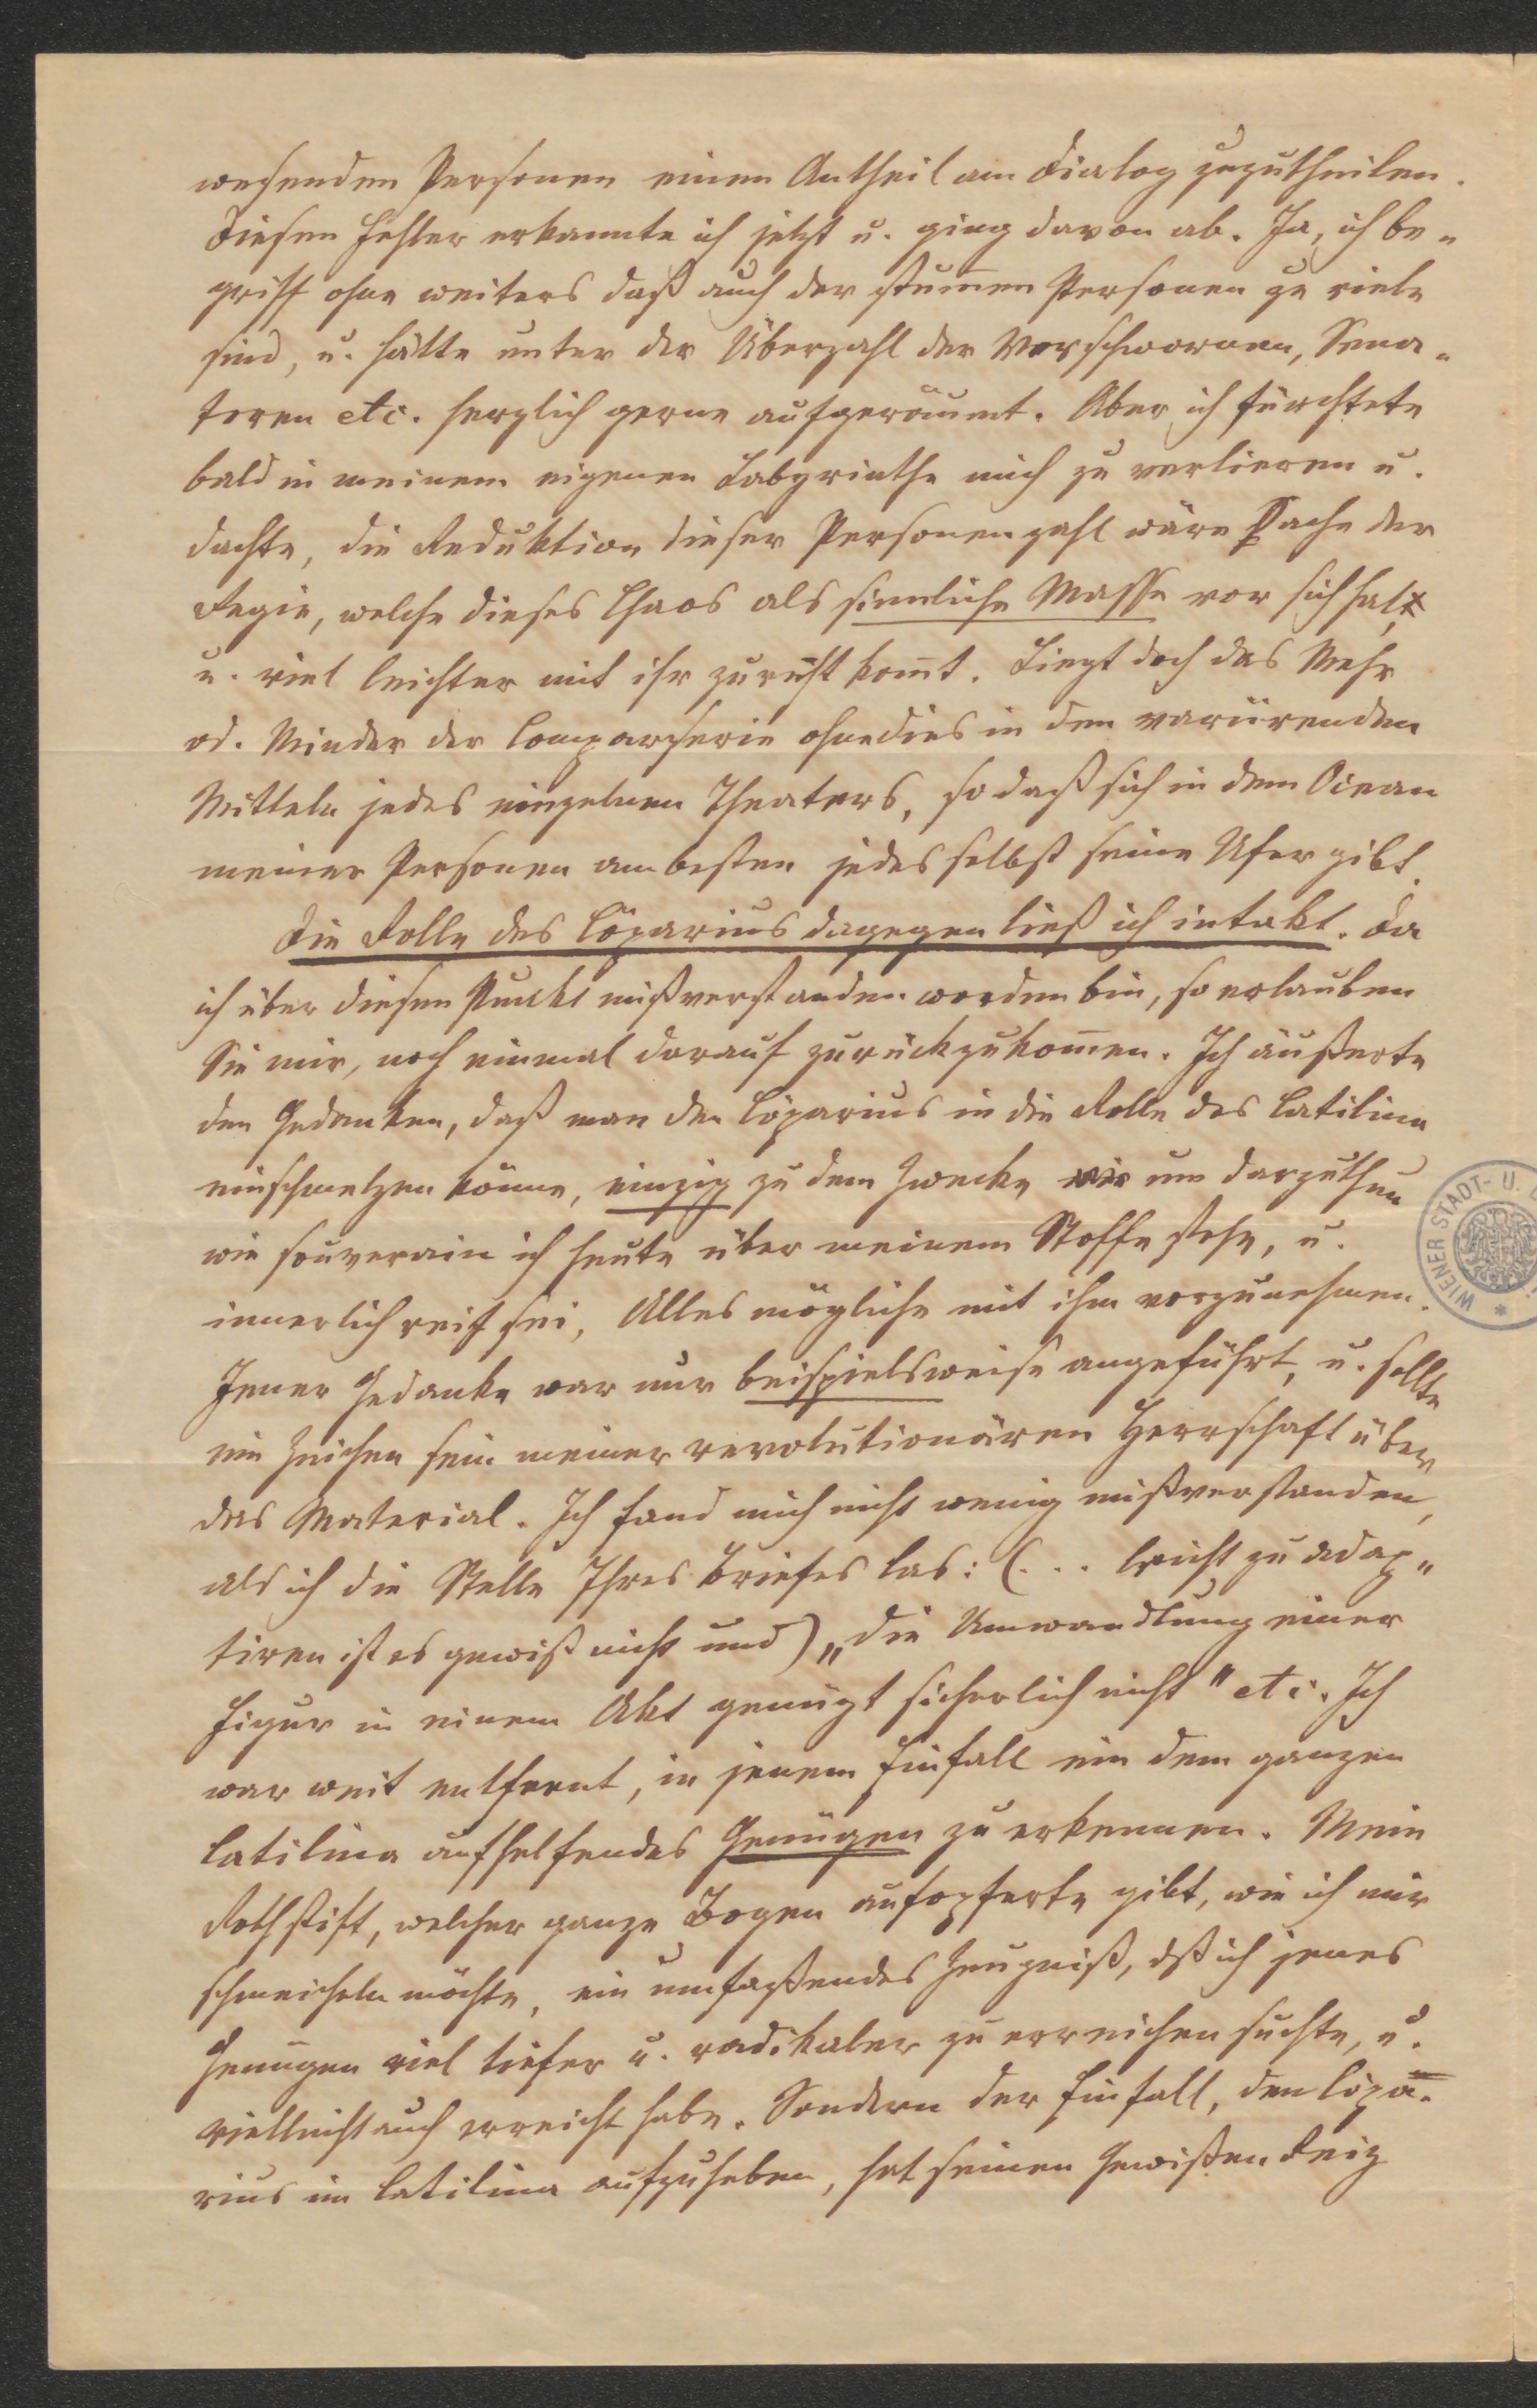 wesenden Personen einen Antheil am Dialog zuzutheilen.
Diesen Fehler erkannte ich jetzt u. ging davon ab. Ja, ich be-
griff ohne weiters daß auch der stum̄en Personen zu viele
sind, u. hätte unter der Überzahl der Verschwornen, Sena-
toren etc. herzlich gerne aufgeräumt. Aber ich fürchtete
bald in meinem eigenen Labyrinthe mich zu verlieren u.
dachte, die Reduktion dieser Personenzahl wäre Sache der
Regie, welche dieses Chaos als sinnliche Masse vor sich hat,
u. viel leichter mit ihr zurecht kom̄t. Liegt doch das Mehr
od. Minder der Comparserie ohnedies in den variirenden
Mitteln jedes einzelnen Theaters, so daß sich in dem Ocean
meiner Personen am besten jedes selbst seine Ufer gibt.
Die Rolle des Cöparius dagegen ließ ich intakt. Da
ich über diesen Punkt mißverstanden worden bin, so erlauben
Sie mir, noch einmal darauf zurückzukom̄en. Ich äußerte
den Gedanken, daß man den Cöparius in die Rolle des Catilina
einschmelzen könne, einzig zu dem Zwecke um darzuthun
wie souverain ich heute über meinem Stoffe stehe, u.
innerlich reif sei, Alles mögliche mit ihm vorzunehmen.
Jener Gedanke war nur beispielsweise angeführt, u. sollte
ein Zeichen sein meiner revolutionären Herrschaft über
das Material. Ich fand mich nicht wenig mißverstanden,
als ich die Stelle Ihres Briefes las: (... leicht zu adap-
tiren ist es gewiß nicht und) „die Umwandlung einer
Figur in einem Akt genügt sicherlich nicht" etc. Ich
war weit entfernt, in jenem Einfall ein dem ganzen
Catilina aufhelfendes Genügen zu erkennen. Mein
Rothstift, welcher ganze Bogen aufopferte gibt, wie ich mir
schmeicheln möchte, ein umfaßendes Zeugniß, dß ich jenes
Genügen viel tiefer u. radikaler zu erreichen suchte, u.
vielleicht auch erreicht habe. Sondern der Einfall, den Cöpa-
rius im Catilina aufzuheben, hat seinen gewißen Reiz
WIENER STADT- U.